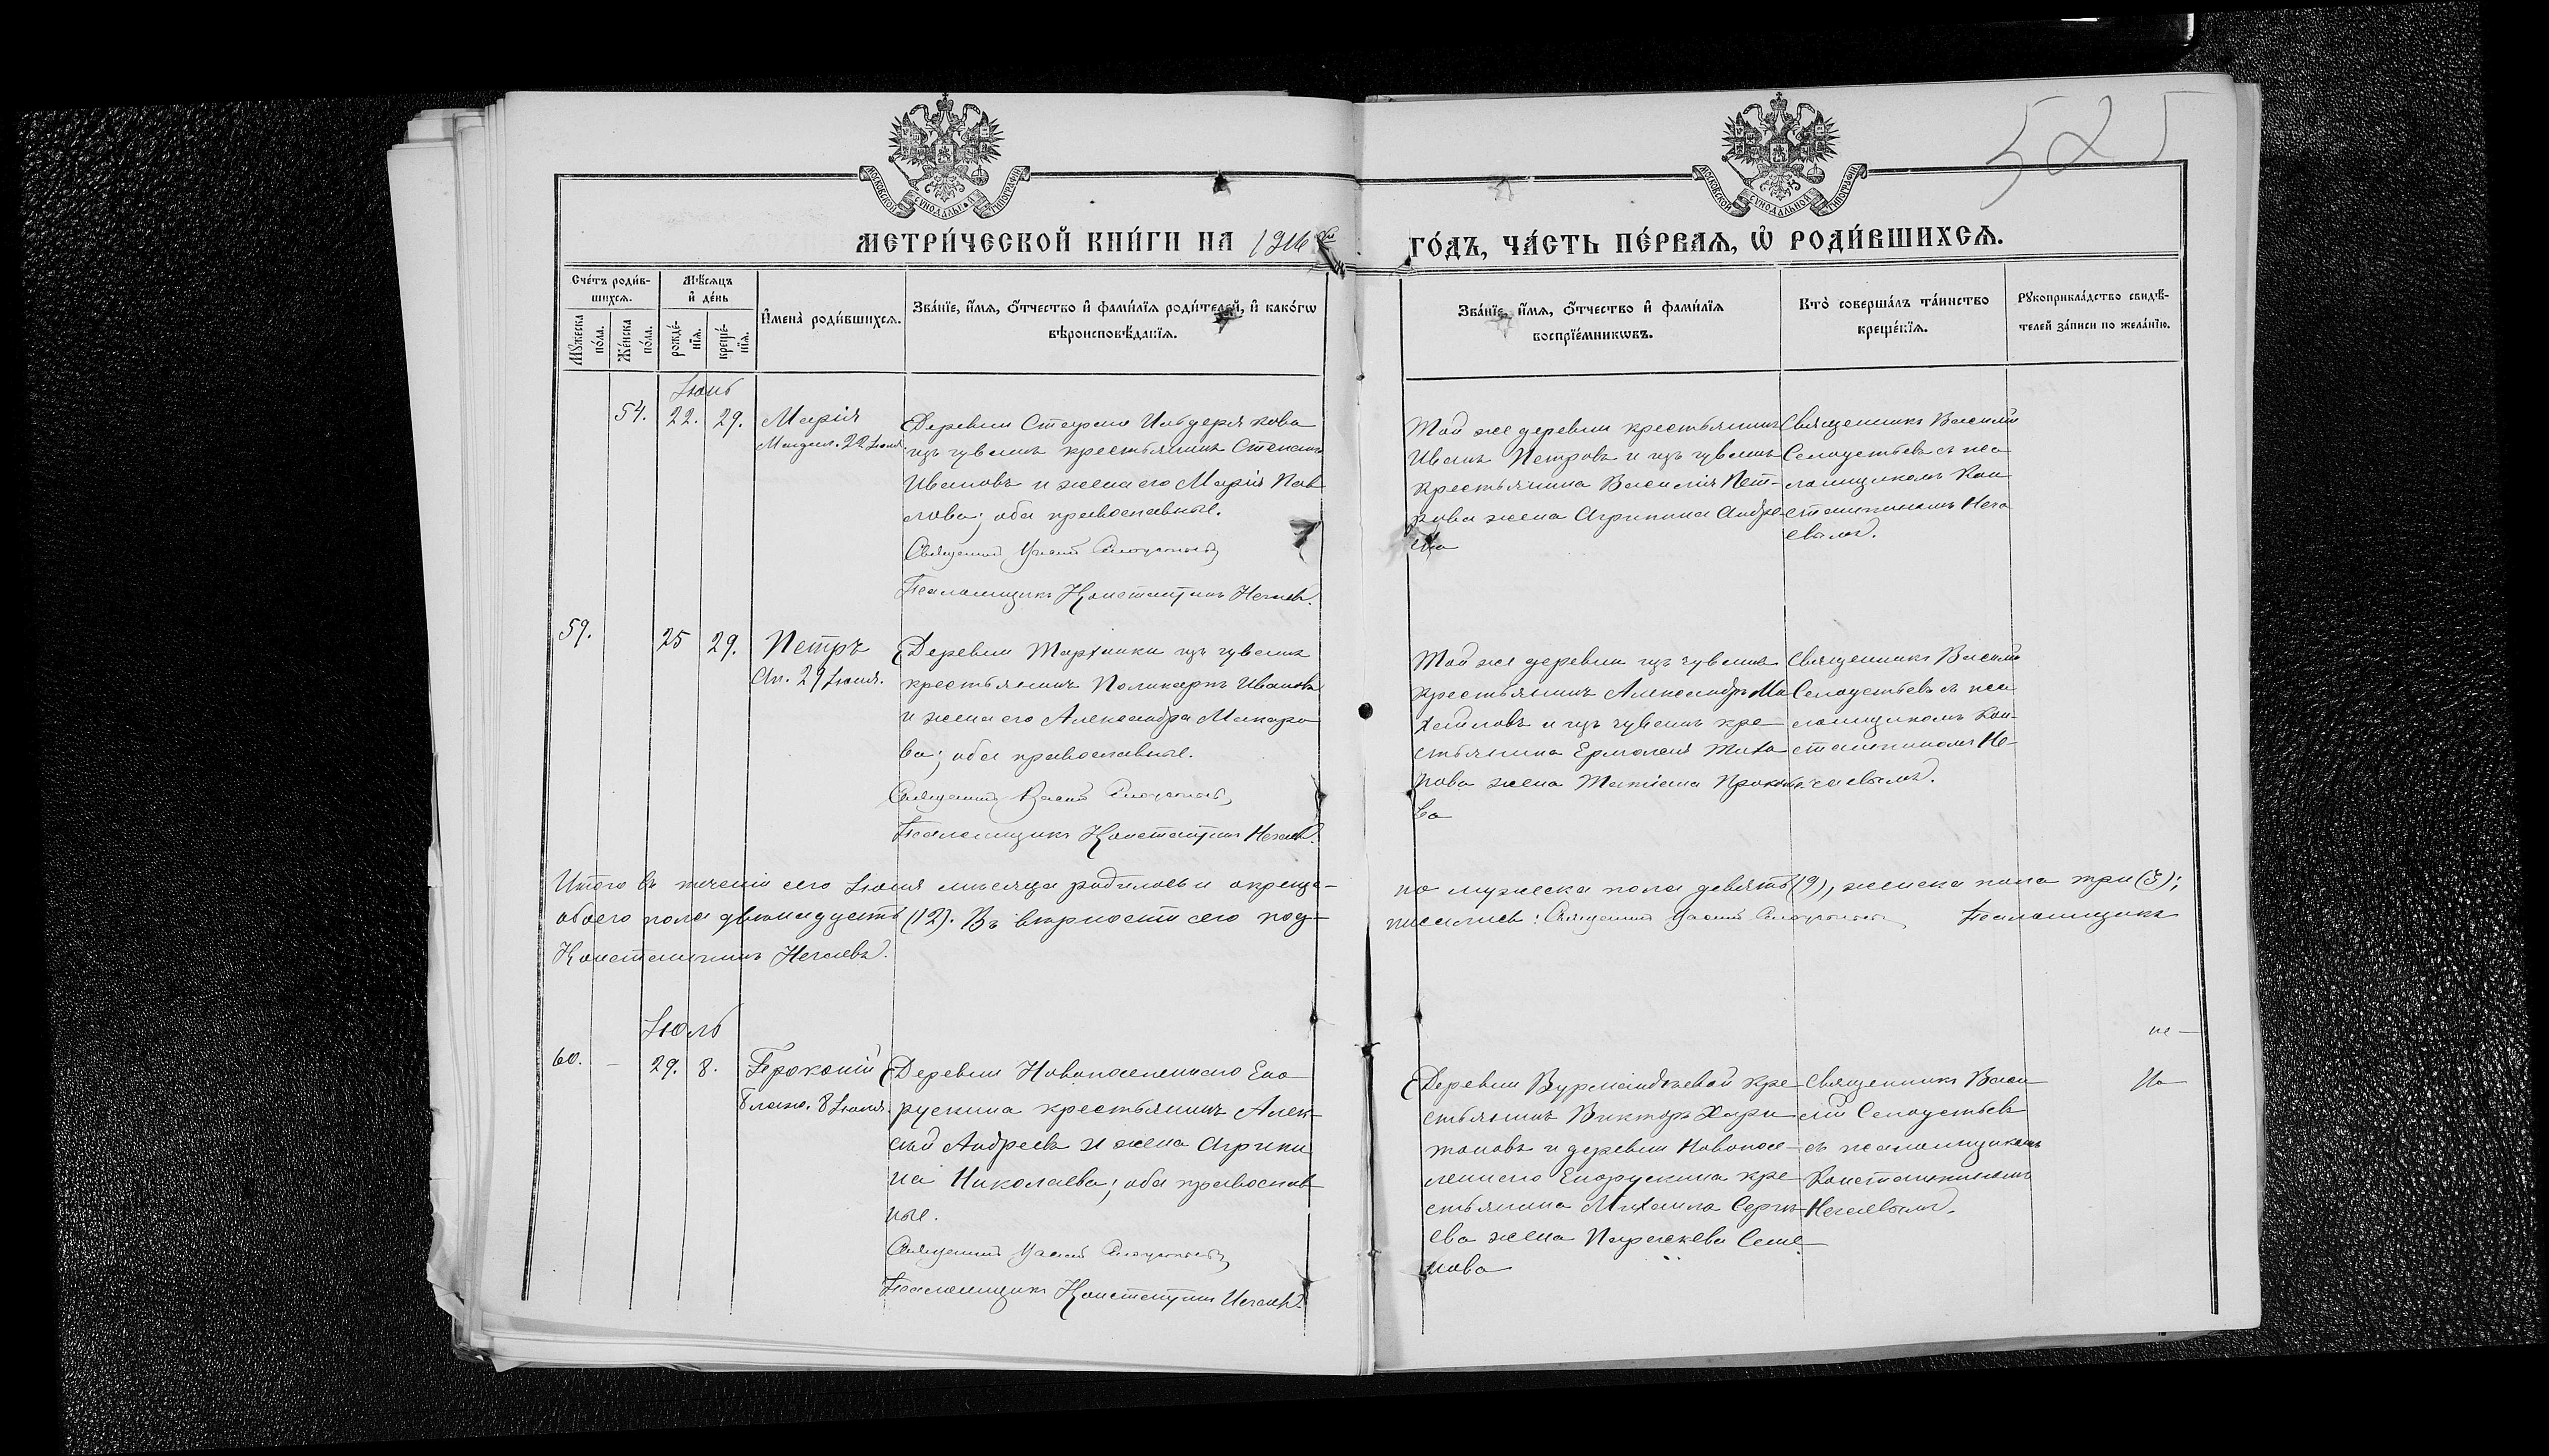 525
МОСКОВСКОЙ СѴНОДАЛЬНОЙ ТИПОГРАФІИ
МОСКОВСКОЙ СѴНОДАЛЬНОЙ ТИПОГРАФІИ
МЕТРИ́ЧЕСКОЙ КНИ́ГИ НА 1916 ГО́ДЪ, ЧА́СТЬ ПЕ́РВАѦ, Ѡ҆ РОДИ́ВШИХСѦ.
Сче́тъ роди́в-
шихся.
Мꙋжеска по́ла.
Же́нска по́ла.
Мѣ́сяцъ и҆ де́нь
рожде́-нїя.
креще́-нїя.
И҆мена̀ роди́вшихся.
Зва́нїе, и҆́мя, ѻ҆́тчество и҆ фами́лїя роди́телей, и҆ како́гѡ
вѣроисповѣ́данїя.
Зва́нїе, и҆́мя, ѻ҆́тчество и҆ фами́лїя
воспрїе́мникѡвъ.
Кто̀ соверша́лъ та́инство
креще́нїя.
Рꙋкоприкла́дство свидѣ́-
телей за́писи по жела́нїю.
Іюнь
54. 22. 29. Марія
Магдал. 22 Іюля.
Деревни Стараго Ильдерякова
изъ чувашъ крестьянинъ Степанъ
Ивановъ и жена его Марія Пав
лова; оба православные.
Священникъ Василій
Псаломщикъ Константинъ Нечаевъ.
Той же деревни крестьянинъ
Иванъ Петровъ и изъ чувашъ
крестьянина Василія Пет-
рова жена Агрипина Андре
ева
Священникъ Василій
съ пса
ломщикомъ Кон
стантиномъ Неча
евымъ.
59. 25 29. Петръ
Ап. 29 Іюня.
Деревни Тарханки изъ чувашъ
крестьянинъ Поликарпъ Ивановъ
и жена его Александра Макаро
ва; оба православные.
Священникъ Василій
Псаломщикъ Константинъ Нечаевъ.
Той же деревни изъ чувашъ
крестьянинъ Александръ Ми
хайловъ и изъ чувашъ кре
стьянина Ермолая Тихо
нова жена Татіана Прокопье
ва
Священникъ Василій
съ пса
ломщикомъ Кон-
стантиномъ Не-
чаевымъ.
Итого въ теченіи сего Іюня мѣсяца родилось и окреще- но мужеска пола девять (9), женска пола три (3);
обоего пола двѣнадцать (12). Въ вѣрности сего под- писались: Священникъ Василій Псаломщикъ
Константинъ Нечаевъ.
Іюль
60. – 29. 8. Прокопій
8 Іюля.
Деревни Новопоселеннаго Ено
рускина крестьянинъ Алек-
сѣй Андреевъ и жена Агрипи
на Николаева; оба православ
ные.
Священникъ Василій
Псаломщикъ Константинъ Нечаевъ.
Деревни Бурмандѣевой кре
стьянинъ Викторъ Хари
тоновъ и деревни Новопосе-
леннаго Енорускина кре
стьянина Михаила Серге
ева жена Параскева Семе
нова
Священникъ Васи
лій
съ псаломщикомъ
Константиномъ
Нечаевымъ.
не –